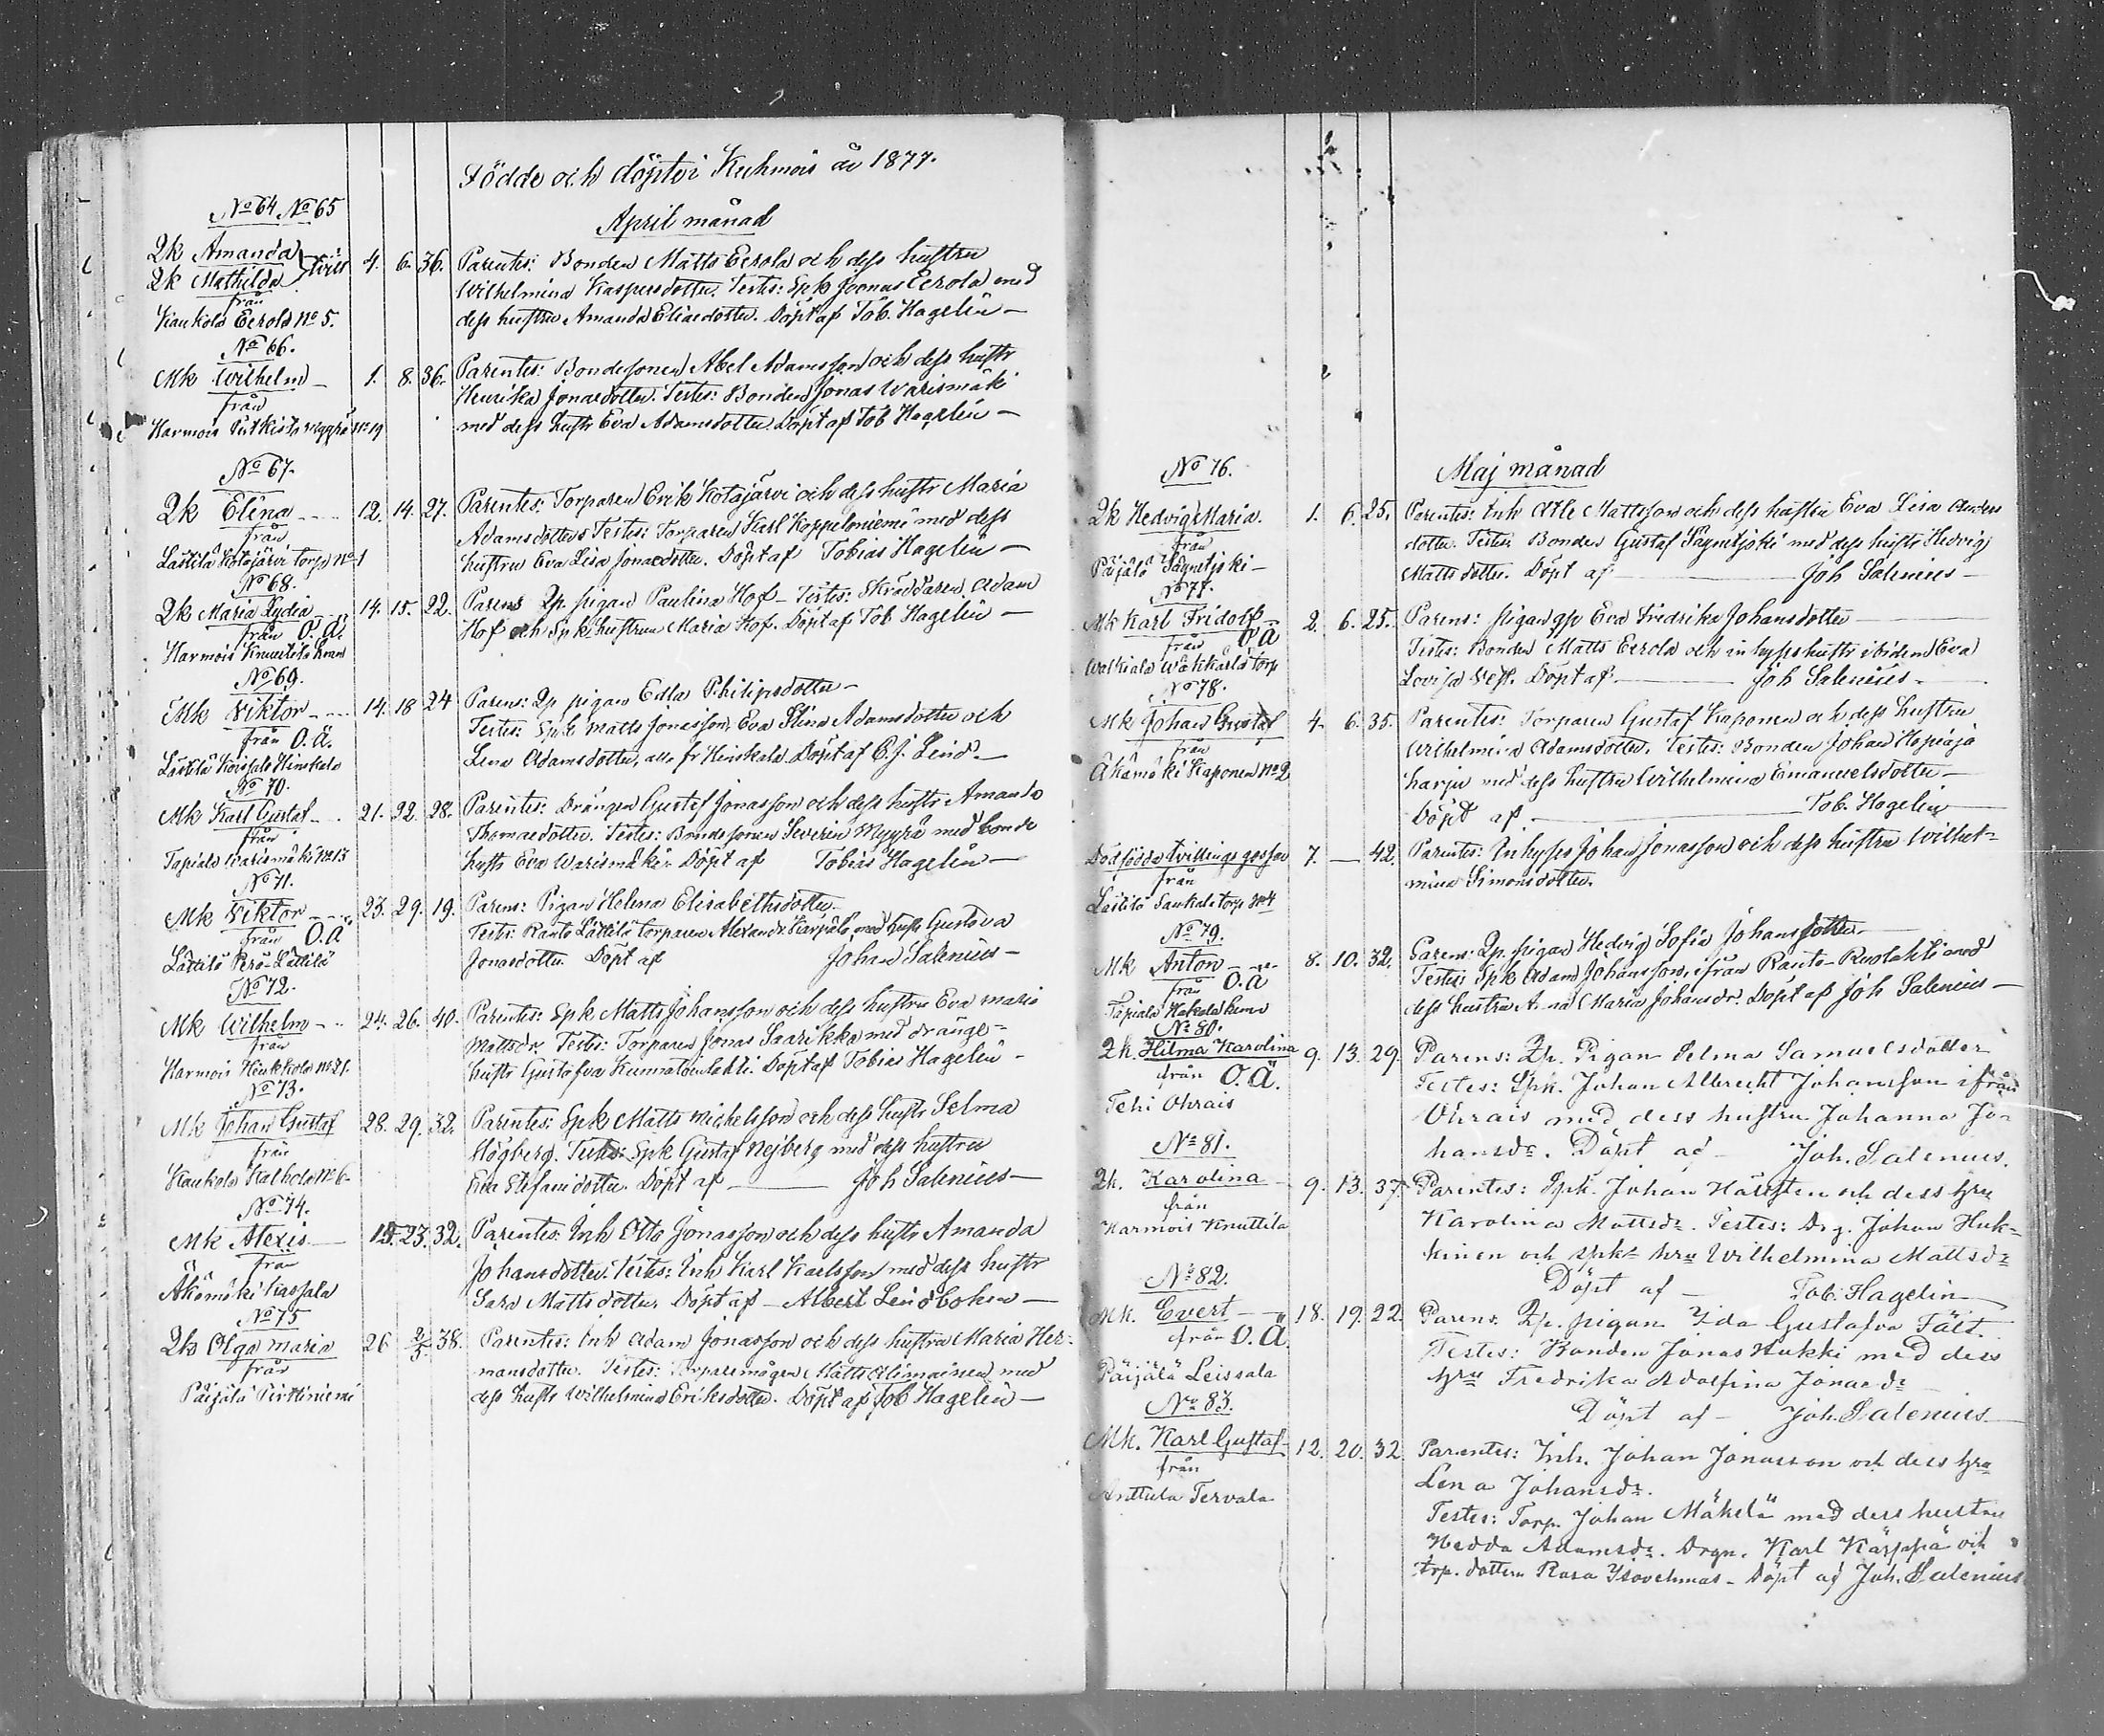 Födde och döpte i Kuhmois år 1877.
No 64 No 65
April månad
Qk Amanda
Qk Mathilda
från
Kaukola Eerola No 5.
4. 6. 36.
Parentes: Bonden Matts Eerola och dess hustru
Wilhelmina Kaspersdotter. Testes: Spk Joonas Eerola med
dess hustru Amanda Eliaedotter. Döpt af Tob. Hagelin –
No 66.
Mk Wilhelm –
från
Harmois No 19
1. 8. 36.
Parentes: Bondesonen Abel Adamsson och dess hustr
Henrika Jonaedotter. Testes: Bonden Jonas Warismäki
med dess hustr Eva Adamsdotter. Döpt af Tob Hagelin –
No 67.
Qk Elina
från
Lästilä Kotajärvi torp No 1
12. 14. 27.
Parentes: Torparen Erik Kotajärvi och dess hustr Maria
Adamsdotter Testes: Torparen Karl Koppeloniemi med dess
hustru Eva Lisa Jonaedotter. Döpt af Tobias Hagelin –
No 68.
Qk Maria Lydia
från O.Ä.
Harmois
14. 15. 22.
Parens Qp. pigan Paulina Hof – Testes: Skräddaren Adam
Hof och Spk hustrun Maria Hof. Döpt af Tob Hagelin –
No 69.
Mk Viktor
från O.ä.
Lästilä
14. 18 24
Parens: Qp pigan Edla Philipsdotter –
Testes: Spk Matts Jonasson, Eva Stina Adamsdotter och
Lena Adamsdotter, alla fr Heiskala. Döpt af C.J. Lind –
No 70.
Mk Karl Gustaf
från
Tapiala Warismäki No 13
21. 22. 28.
Parentes: Drängen Gustaf Jonasson och dess hustr Amanda
Thomaedotter. Testes: Bondesonen Severin Myyrä med bonde
hustr Eva Warismäki. Döpt af Tobias Hagelin –
No 71.
Mk Viktor
från O.Ä
Lättilä Perä-Lättilä
23. 29. 19.
Parens: Pigan Helena Elisabethsdotter
Testes: Ranta Lättilä torparen Alexander med hustr Gustava
Jonasdotter. Döpt af Johan Salenius –
No 72.
Mk Wilhelm
från
Harmois Heikkola No 21.
24. 26. 40.
Parentes: Spk Matts Johansson och dess hustru Eva Maria
Mattsdr Testes: Torparen Jonas Saarikko med dränge-
hustr Gustafva. Döpt af Tobias Hagelin –
No 73.
Mk Johan Gustaf
från
Kaukola No 6
28. 29. 32.
Parentes: Spk Matts Michelsson och dess hustr Selma
Högberg. Testes: Spk Gustaf Nejberg med dess hustru
Eva Stefanidotter. Döpt af – Joh Salenius –
No 74.
Mk Alexis
från
Äkämäki Kassala
23. 32.
Parentes: Inh Otto Jonasson och dess hustr Amanda
Johansdotter. Testes: Inh Karl Karlsson med dess hustr
Sara Mattsdotter. Döpt af – Albert Lindbohm –
No 75
Qk Olga Maria
från
Päijälä Pirttiniemi
26 2/5 38.
Parentes: Inh Adam Jonasson och dess hustru Maria Her-
mansdotter. Testes: Torparemågen Matts med
dess hustr Wilhelmina Eriksdotter. Döpt af Tob Hagelin –
No 76.
Maj månad
Qk Hedvig Maria.
från
Päijälä
1. 6. 25.
Parentes: Inh Mattsson och dess hustru Eva Lisa Anders
dotter. Testes: Bonden Gustaf med dess hustr Hedvig
Mattsdotter. Döpt af – Joh Salenius –
No 77.
Mk Karl Fridolf
från O Ä
torp
2. 6. 25.
Parens: pigan qp Eva Fredrika Johansdotter
Testes: Bonden Matts Eerola och inhyses hustr ibidem Eva
Lovisa. Döpt af – Joh Salenius –
No 78.
Mk Johan Gustaf
från
Äkämäki Kaponen No 2
4. 6. 35.
Parentes: Torparen Gustaf Kaponen och dess hustru
Wilhelmina Adamsdotter. Testes: Bonden Johan
harju med dess hustru Wilhelmina Emanuelsdotter –
Döpt af – Tob. Hagelin
Dödfödda tvillings gossar
från
Lästilä torp No 4
7. – 42.
Parentes: Inhyses Johan Jonasson och dess hustru Wilhel-
mina Simonsdotter.
No 79.
Mk Anton
från O.ä
Tapiala Hakala
8. 10. 32.
Parens: Qp. pigan Hedvig Sofia Johansdotter
Testes: Spk Adam Johansson, ifrån Ranta-Ruolahti med
dess hustru Anna Maria Johansdr. Döpt af Joh Salenius –
No 80.
Qk. Hilma Karolina
från O.Ä.
Tehi Ohrais
9. 13. 29.
Parens: Qp. Pigan Selma Samuelsdotter
Testes: Spk. Johan Albrecht Johansson ifrån
Ohrais med dess hustru Johanna Jo-
hansdr. Döpt af – Joh. Salenius.
No 81.
Qk. Karolina
från
Harmois Knuttila
9. 13. 37.
Parentes: Spk. Johan Hällsten och dess hru
Karolina Mattsdr. Testes: Drg. Johan Huk-
kinen och spks hru Wilhelmina Mattsdr
Döpt af – Tob. Hagelin
No 82.
Mk. Evert
från O.Ä.
Päijälä Leissala
18. 19. 22.
Parens. Qp. pigan Ida Gustafva Fält.
Testes: Bonden Jonas Hukki med dess
hru Fredrika Adolfina Jonaedr
Döpt af – Joh. Salenius
No 83.
Mk. Karl Gustaf
från
Anttula Tervala
12. 20. 32
Parentes: Inh. Johan Jonasson och dess hru
Lena Johansdr.
Testes: Torp. Johan Mäkelä med dess hustru
Hedda Adamsdr. Drgn. Karl Käppä och
trp. dottern Rosa – Döpt af Joh. Salenius